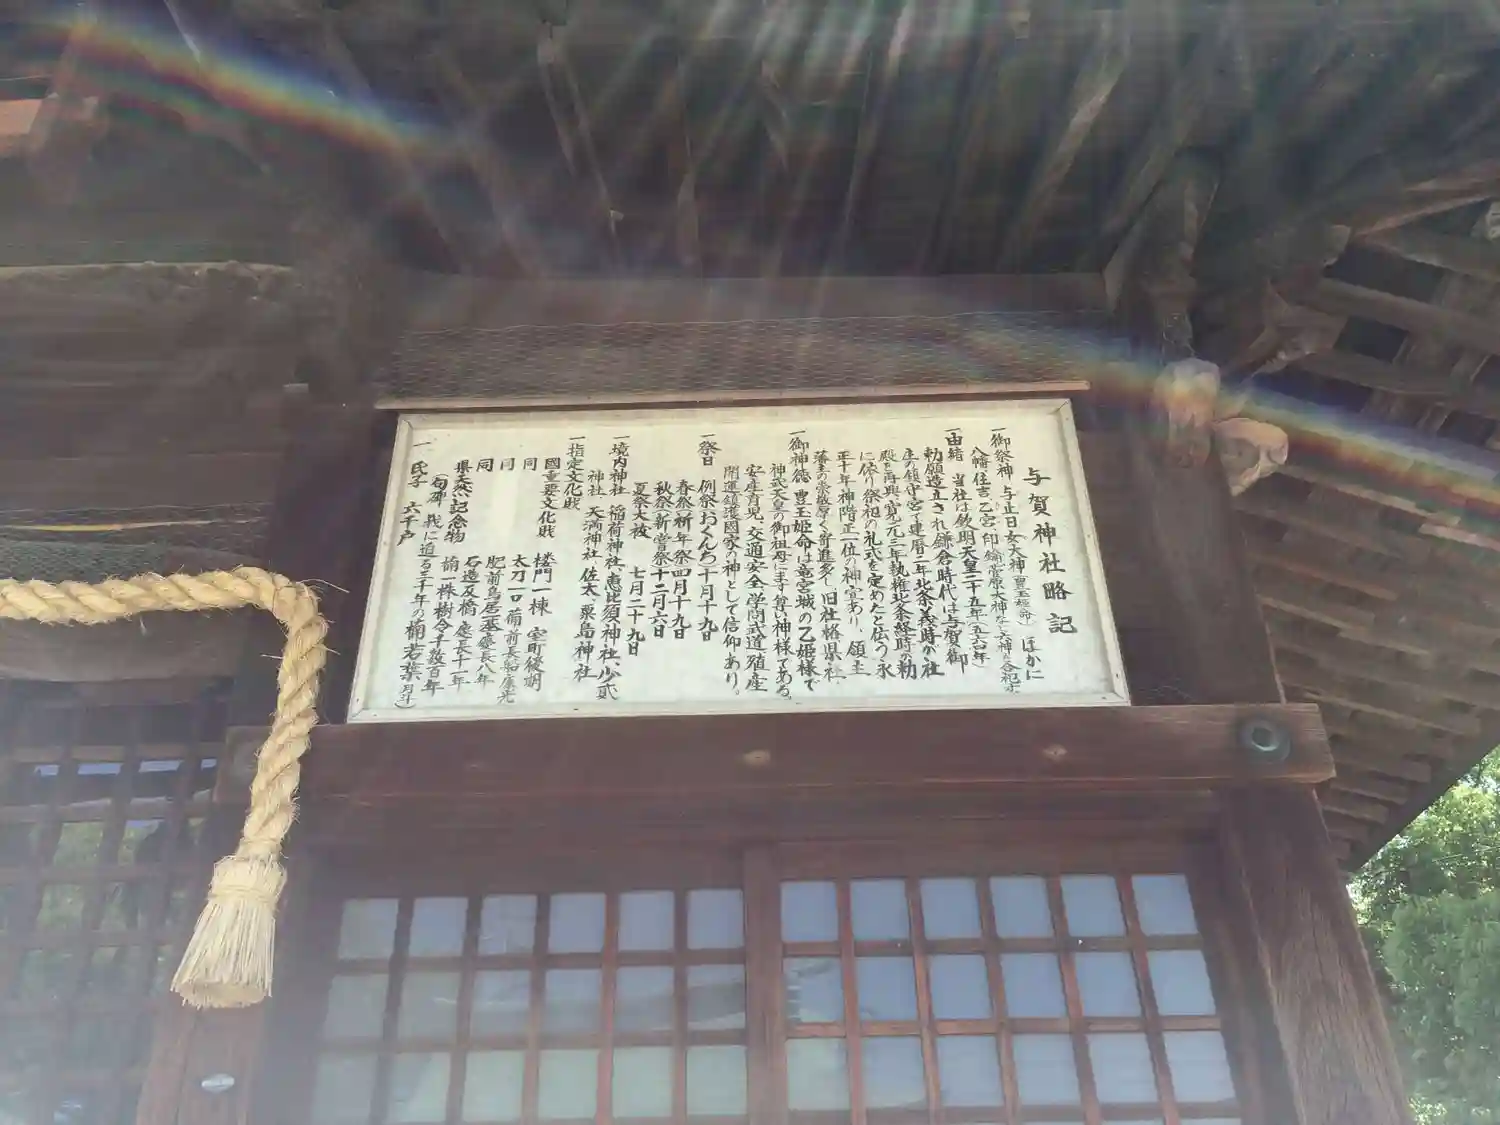 与賀神社略記
一御祭神 与止日女大神(豊玉姫命)ほかに
八幡、住吉、乙宮、印鑰、菅原大神など六神を合祀す
一由緒 当社は欽明天皇二十五年(五六四年
勅願造立され鎌倉時代は与賀郷
庄の鎮守宮で建暦三年北条義時が社
殿を再興、寛元三年執権北条経時の勅
に依り祭祖の礼式を定めたと伝う、永
正十年神階正一位の神宣あり、領主
藩主の崇敬厚く寄進多し旧社格県社、
一御神徳 豊玉姫命は竜宮城の乙姫様で
神武天皇の御祖母に ます尊い神様である。
安産育児、交通安全、学問武道、殖産
開運鎮護國家の神として信仰あり。
一祭日 例祭(おくんち)十月十九日
春祭(祈年祭)四月十九日
秋祭(新嘗祭)十二月六日
夏祭大祓 七月二十九日
一境内神社 稲荷神社、恵比須神社、少貳
神社、天満神社、佐太、粟島神社
一指定文化財
國重要文化財 楼門一棟 室町後期
同 太刀一口 備前長船康光
同 肥前鳥居三基慶長八年
同 石造反橋 慶長十一年
県天然記念物 楠一株樹令千数百年
(句碑 我に迫る三千年の楠若葉 月斗)
一 氏子 六千戸